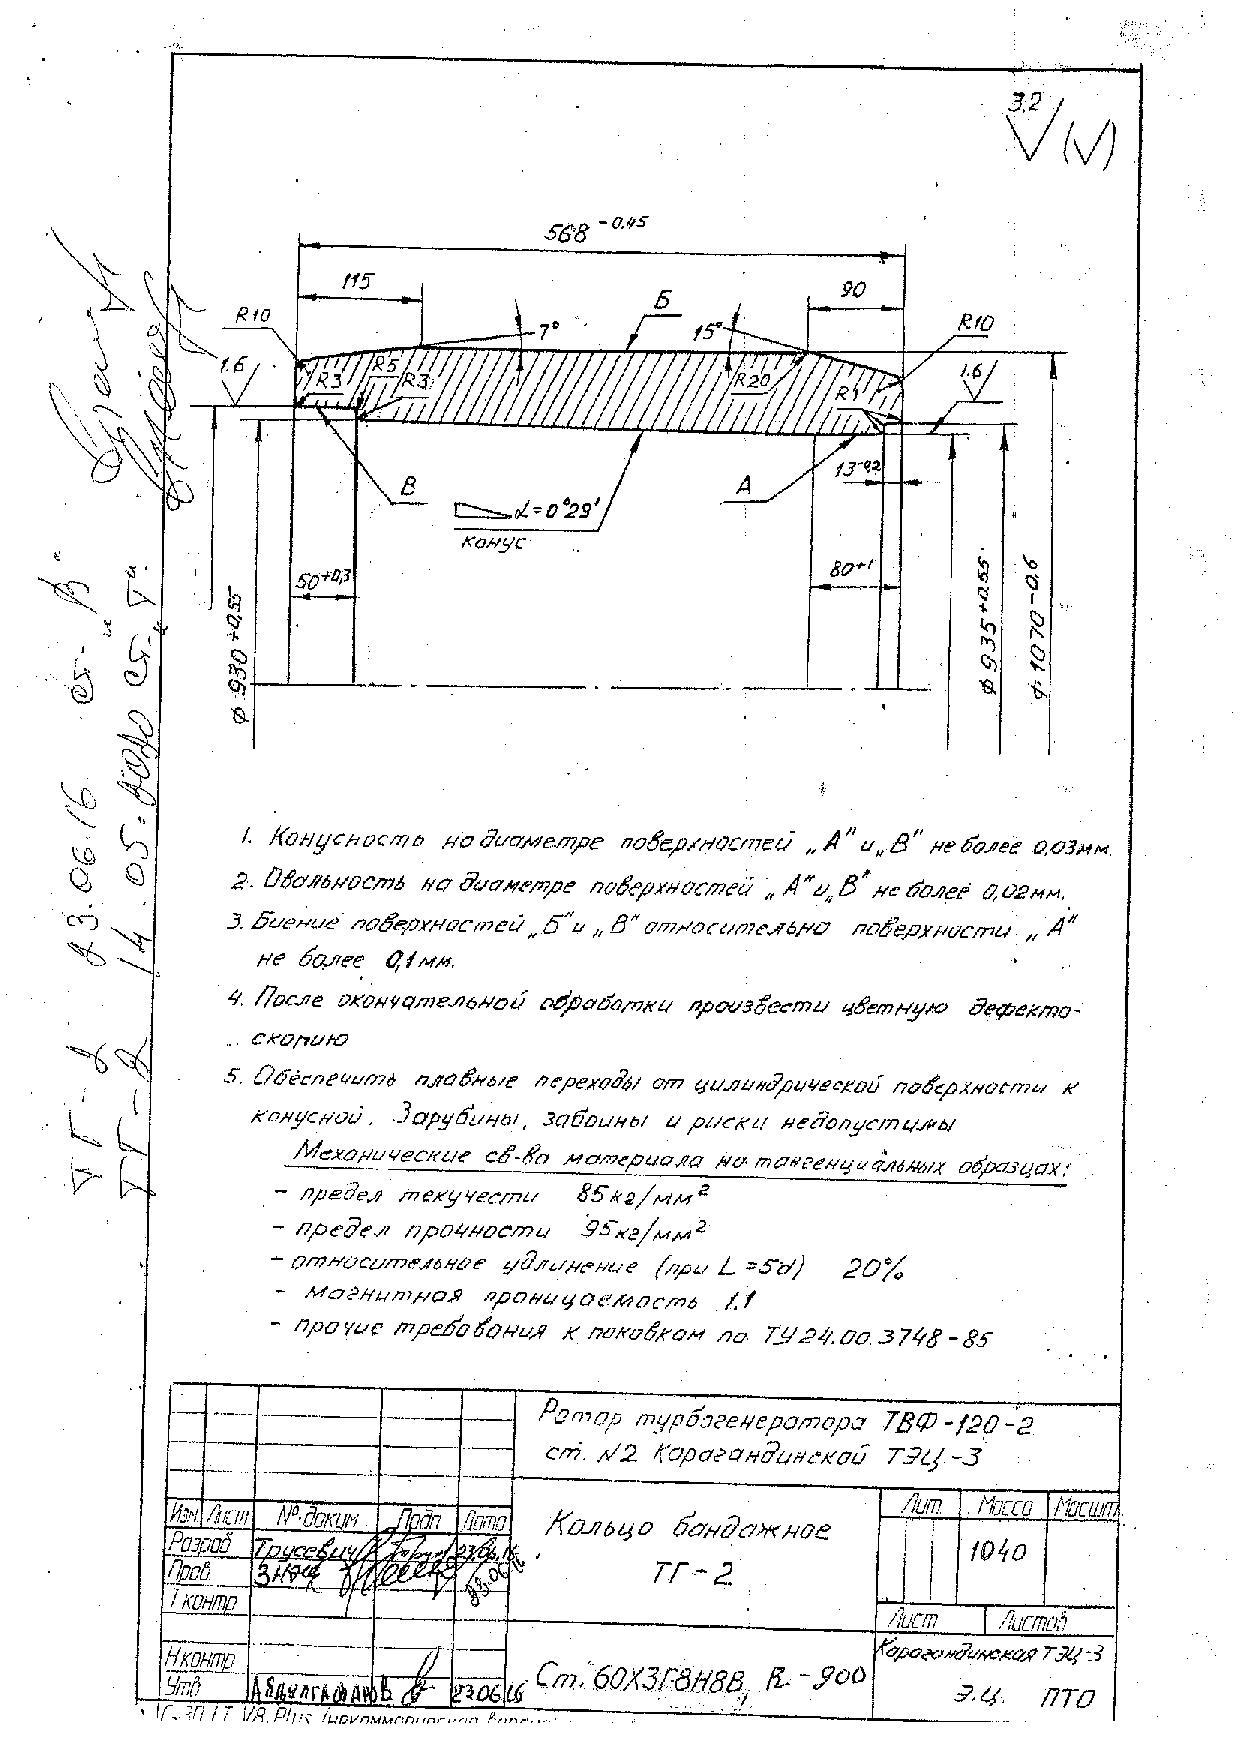 3.2
568 -0.45
115
90
Б
R10
7°
15°
R10
1.6
R3
R5
R3
R20
R1
1.6
13-0,2
В
А
α=0°29'
конус
50+0,3
80+1
ф 930+0,55
ф 935+0,55
ф 1070-0.6
1. Конусность на диаметре поверхностей „А" и „В" не более 0,03мм.
2. Овальность на диаметре поверхностей „А" и „В" не более 0,02мм.
3. Биение поверхностей „Б" и „В" относительно поверхности „А"
не более 0,1мм.
4. После окончательной обработки произвести цветную дефекто-
скопию
5. Обеспечить плавные переходы от цилиндрической поверхности к
конусной. Зарубины, забоины и риски недопустимы
Механические св-ва материала на тангенциальных образцах:
- предел текучести 85кг/мм²
- предел прочности 95кг/мм²
- относительное удлинение (при L=5d) 20%
- магнитная проницаемость 1.1
- прочие требования к поковкам по ТУ24.00.3748-85
Ротор турбогенератора ТВФ-120-2
ст. N2 Карагандинской ТЭЦ-3
Изм Лист № докум. Подп Дата
Разраб Трусевич 23.06.16
Пров 23.06.16
Т контр
Н контр
Утв 23.06.16
Кольцо бандажное
ТГ-2
Лит. Масса Масшт
1040
Лист Листов
Ст. 60Х3Г8Н8В, R-900
Карагандинская ТЭЦ-3
Э.Ц. ПТО
ТГ-2 23.06.16 ст- „В"
ТГ-2 14.05.